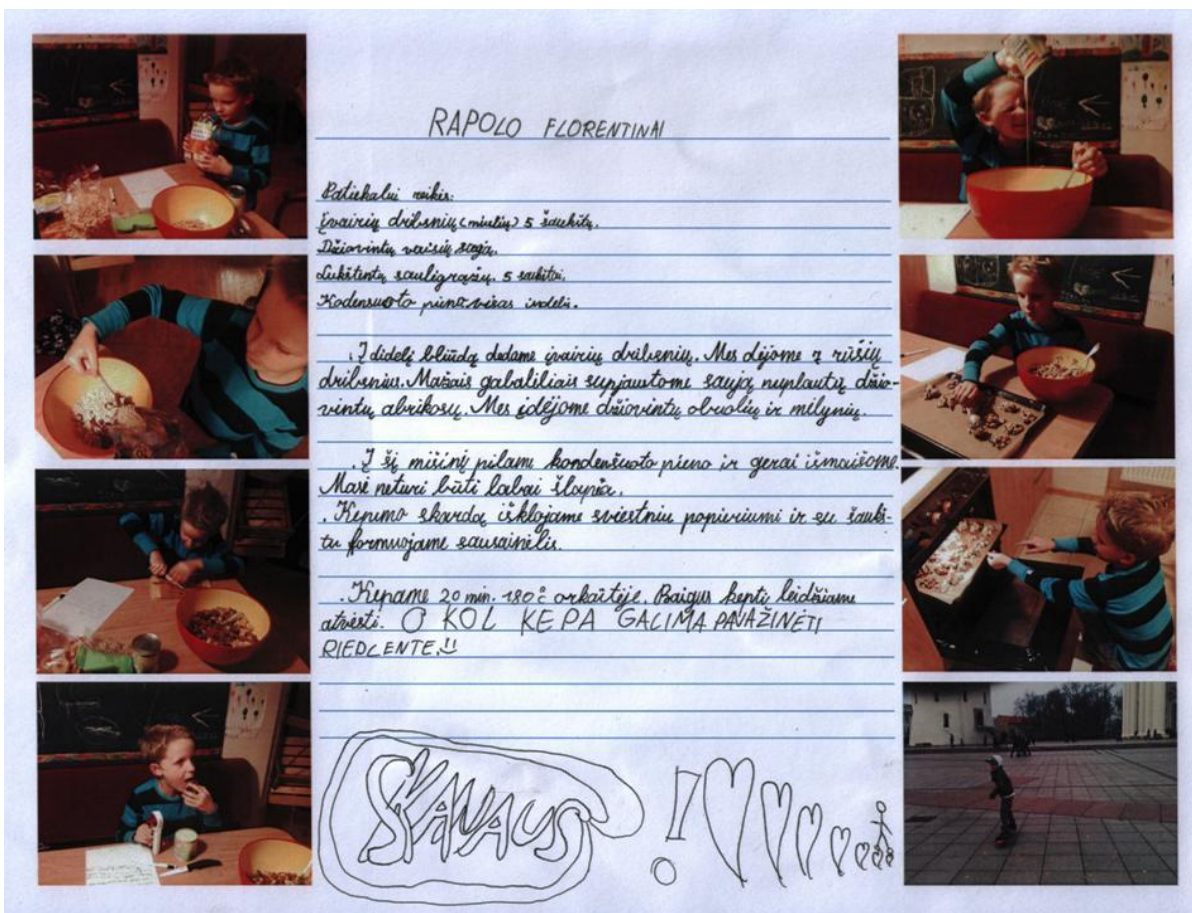 RAPOLO FLORENTINAI
Patiekalui reikės:
Įvairių dribsnių (miulių) 5 šaukštų.
Džiovintų vaisių sauja.
Lukštentų saulėgrąžų. 5
Kodensuoto pieno visas indelis.
. Į didelį bliūdą dedame įvairių dribsnių. Mes dėjome 7 rūšių
dribsnius. Mažais gabaliliais supjaustome saują nuplautų džio-
vintų abrikosų. Mes įdėjome džiovintų obuolių ir mėlynių.
. Į šį mišinį pilami kondensuoto pieno ir gerai išmaišome.
Masė neturi būti labai šlapia.
. Kepimo skardą išklojame sviestiniu popieriumi ir su šaukš-
tu formuojame sausainėlis.
. Kepame 20 min. 180°C orkaitėje. Baigus kepti leidžiame
atvėsti. O KOL KEPA GALIMA PAVAŽINĖTI
RIEDLENTE.
SKANAUS!